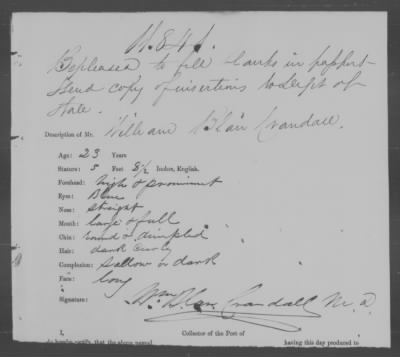 Be pleased to fill blanks in passport
Send copy of insertions to Dept of
State.
Description of Mr. William Blair Crandall.
Age: 23 Years
Stature: 5 Feet 8 1/2 Inches, English.
Forehead: high & prominent
Eyes: Blue
Nose: straight
Mouth: large & full
Chin: round & dimpled
Hair: dark curly
Complexion: sallow or dark
Face: long
Signature: Wm Blair Crandall M.D.
I, Collector of the Port of
do hereby certify, that the above named having this day produced to